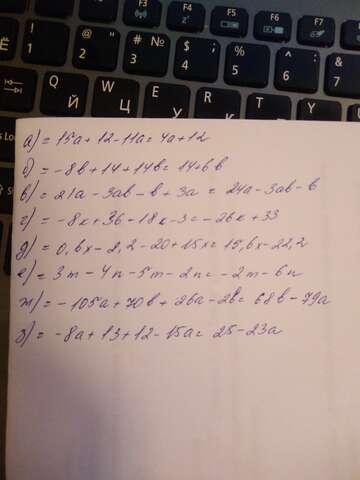 F3 F4 F5 F6 F7
Ё ! 1 @ " 2 # № 3 $ ; 4 % 5 ^ : 6 & 7
Q Й W Ц E R T Y
а) = 15a + 12 - 11a = 4a + 12
б) = -8b + 14 + 14b = 14 + 6b
в) = 21a - 3ab - b + 3a = 24a - 3ab - b
г) = -8к + 36 - 18к - 3 = -26к + 33
д) = 0,6x - 2,2 - 20 + 15x = 15,6x - 22,2
е) = 3m - 4n - 5m - 2n = -2m - 6n
ж) = -105a + 70b + 26a - 2b = 68b - 79a
з) = -8a + 13 + 12 - 15a = 25 - 23a